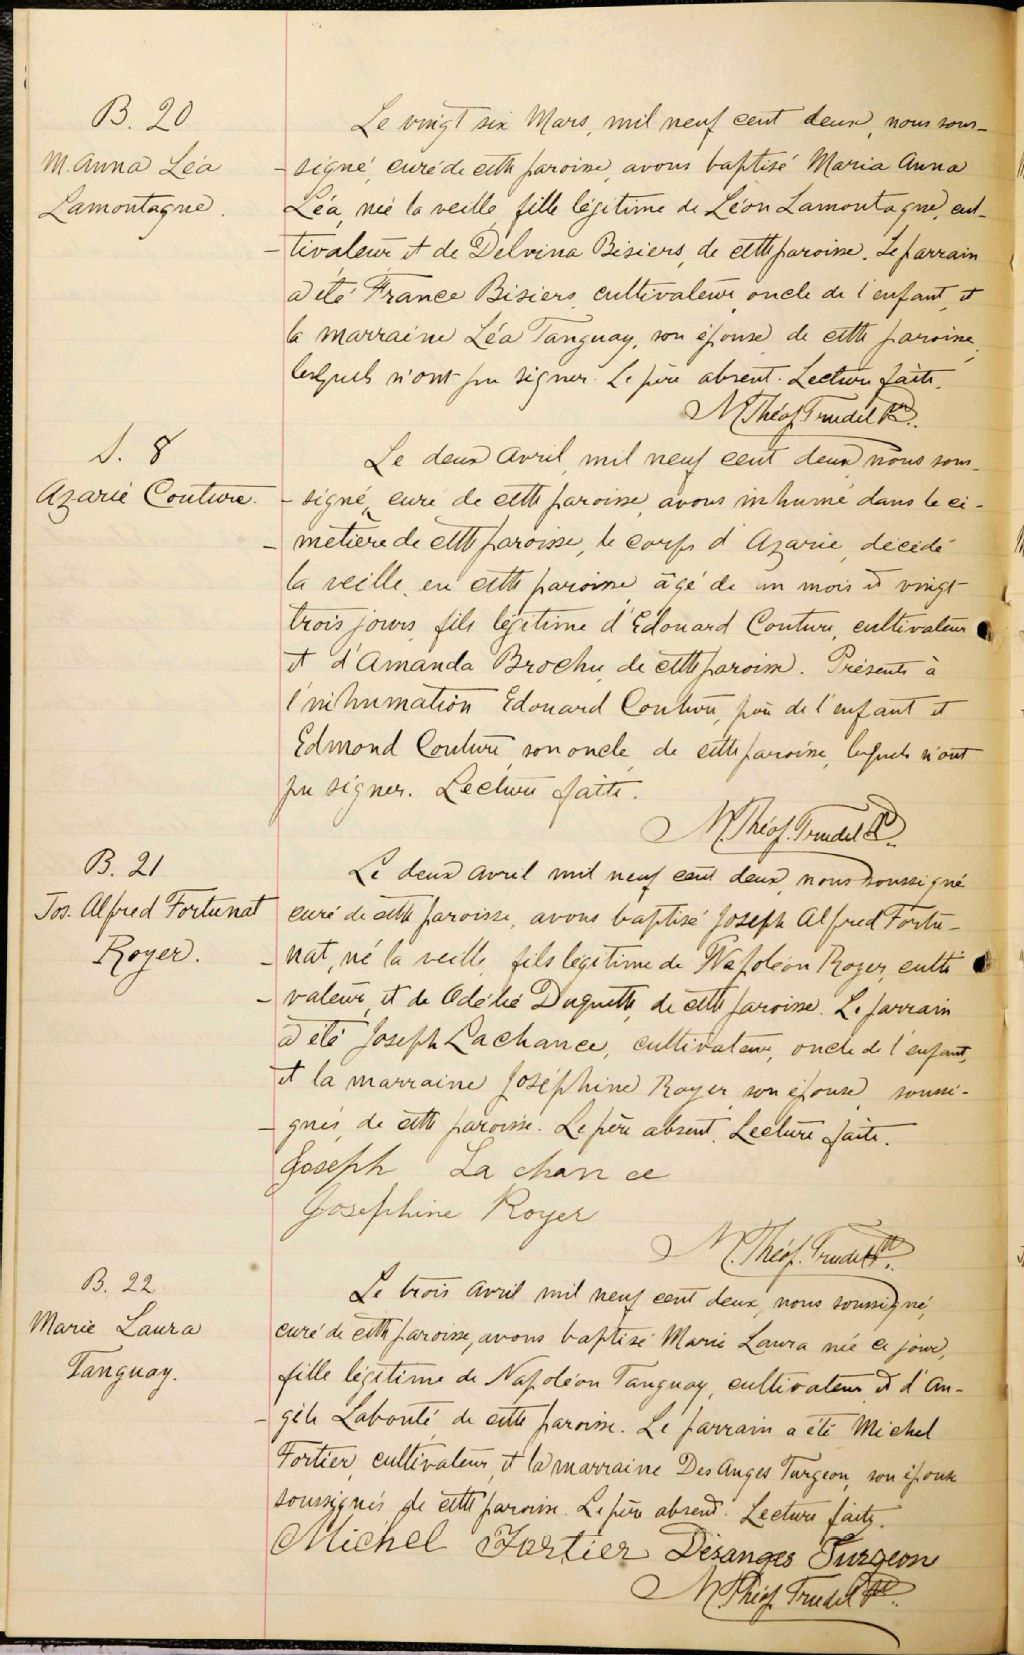 B. 20
M. Anna Léa
Lamontagne.
Le vingt six Mars, mil neuf cent deux, nous sous-
-signé, curé de cette paroisse, avons baptisé Maria Anna
Léa, née la veille, fille légitime de Léon Lamontagne, cul-
-tivateur et de Delvina Bisiers, de cette paroisse. Le parrain
a été France Bisiers, cultivateur, oncle de l'enfant, et
la marraine Léa Tanguay, son épouse, de cette paroisse,
lesquels n'ont pu signer. Le père absent. Lecture faite.
M. Théop. Trudel Ptre.
S. 8
Azarie Couture.
Le deux Avril, mil neuf cent deux nous sous-
-signé, curé de cette paroisse, avons inhumé dans le ci-
-metière de cette paroisse, le corps d'Azarie, décédé
la veille, en cette paroisse, âgé de un mois et vingt-
trois jours, fils légitime d'Edouard Couture, cultivateur
et d'Amanda Brochu, de cette paroisse. Présents à
l'inhumation Edouard Couture, père de l'enfant et
Edmond Couture, son oncle, de cette paroisse, lesquels n'ont
pu signer. Lecture faite.
M. Théop. Trudel Ptre.
B. 21
Jos. Alfred Fortunat
Royer.
Le deux Avril mil neuf cent deux, nous soussigné
curé de cette paroisse, avons baptisé Joseph Alfred Fortu-
-nat, né la veille, fils légitime de Napoléon Royer, culti
-vateur, et de Odélie Duquette, de cette paroisse. Le parrain
a été Joseph Lachance, cultivateur, oncle de l'enfant,
et la marraine Joséphine Royer, son épouse, soussi-
-gnés, de cette paroisse. Le père absent. Lecture faite.
Joseph La chan ce
Josephine Royer
M. Théop. Trudel Ptre.
B. 22
Marie Laura
Tanguay.
Le trois Avril mil neuf cent deux, nous soussigné,
curé de cette paroisse, avons baptisé Marie Laura née ce jour,
fille légitime de Napoléon Tanguay, cultivateur et d'An-
-gèle Labonté, de cette paroisse. Le parrain a été Michel
Fortier, cultivateur, et la marraine Des Anges Turgeon, son épouse
soussignés de cette paroisse. Le père absent. Lecture faite.
Michel Fortier Désanges Turgeon
M. Théop. Trudel Ptre.